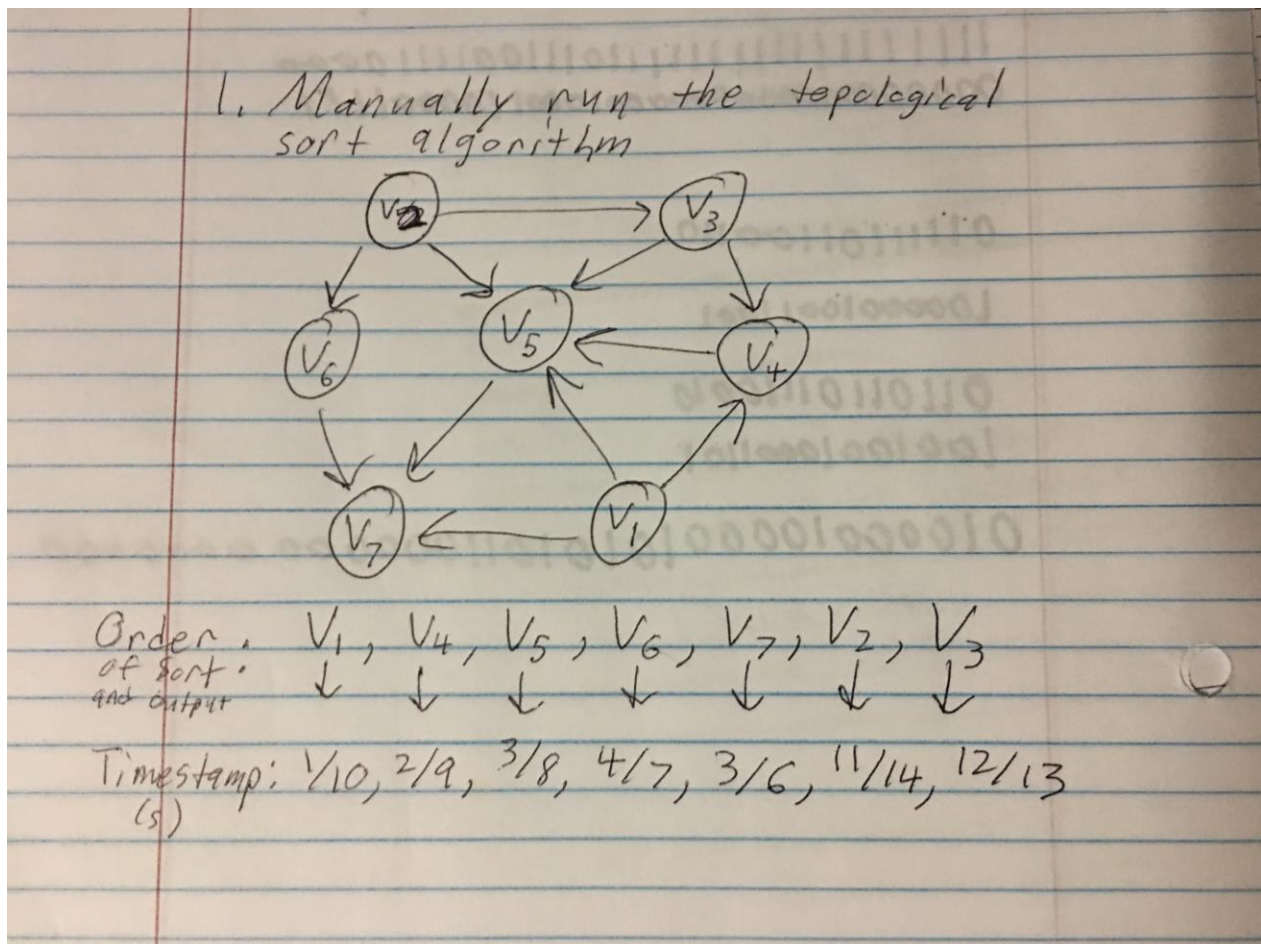 1. Manually run the topological
sort algorithm
V2
V3
V6
V5
V4
V7
V1
Order :
of sort
and output
V1, V4, V5, V6, V7, V2, V3
↓ ↓ ↓ ↓ ↓ ↓ ↓
Timestamp: 1/10, 2/9, 3/8, 4/7, 3/6, 11/14, 12/13
(s)